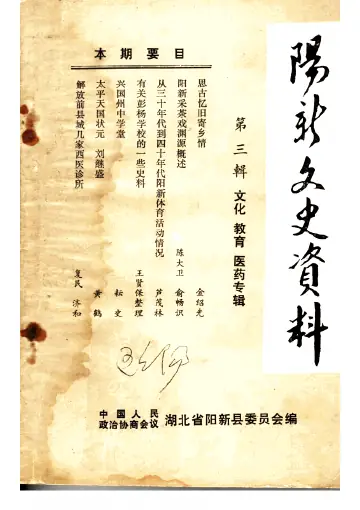 陽新文史資料
第三輯 文化 教育 医药专辑
本期要目
恩古忆旧寄乡情 金绍先
阳新采茶戏渊源概述 陈大卫 俞畅识
从三十年代到四十年代阳新体育活动情况 芦茂林
有关彭杨学校的一些史料 王贤保整理
兴国州中学堂 耘史
太平天国状元 刘继盛 黄鹤
解放前县城几家西医诊所 复民 济和
中国人民
政治协商会议 湖北省阳新县委员会编